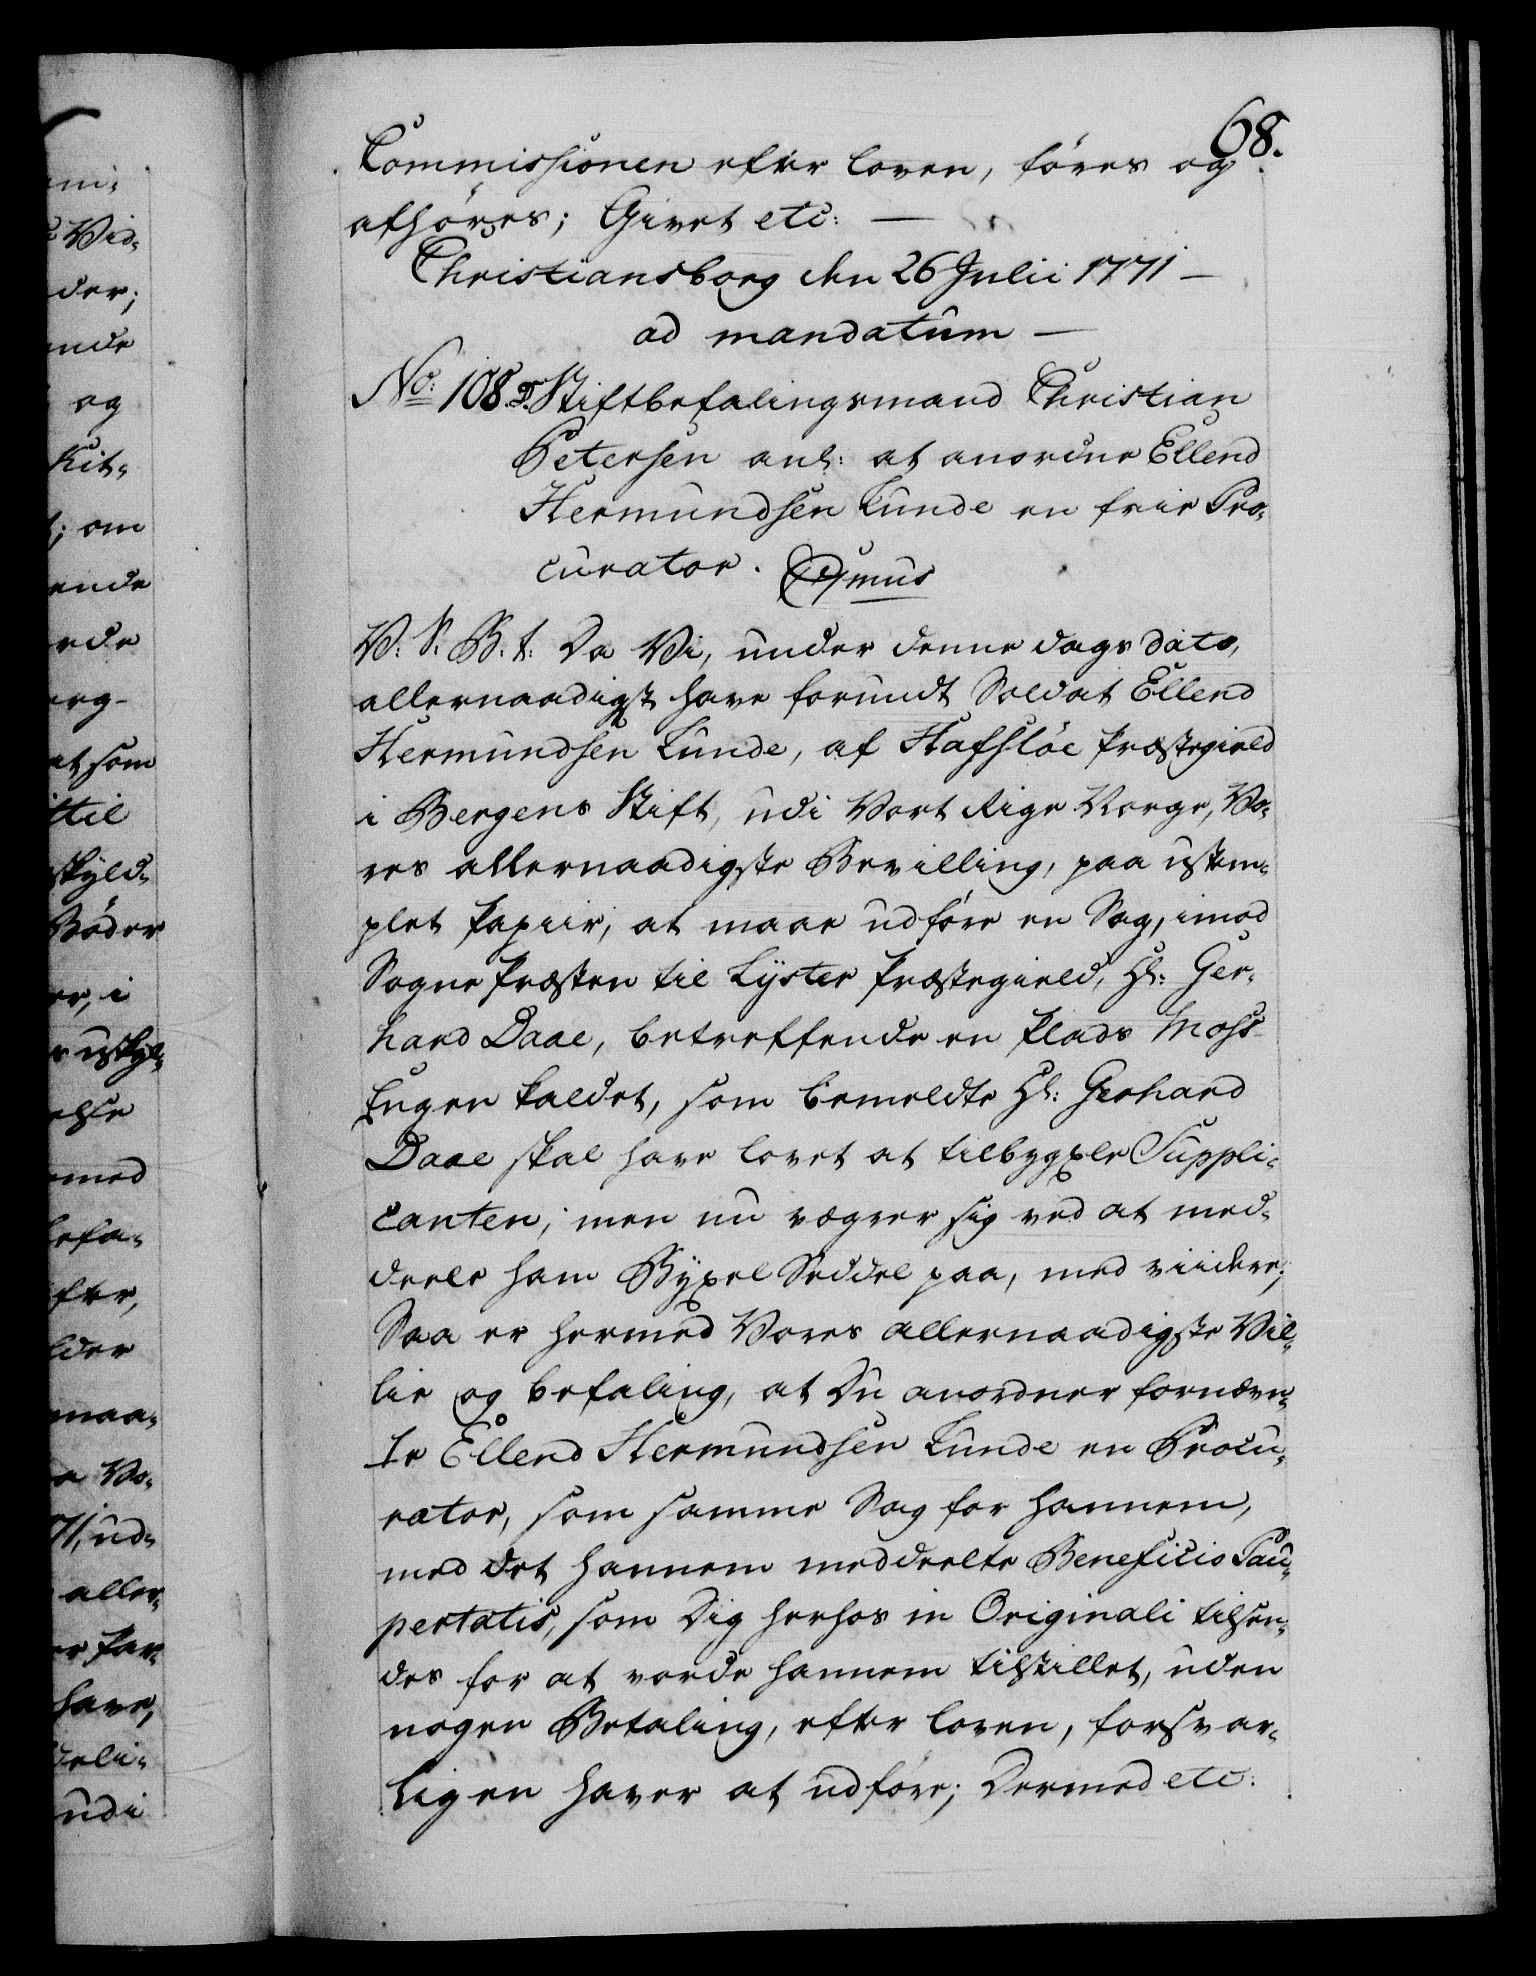 68.
Commissionen efter loven, føres og
afhøres; Givet etc: —
Christiansborg den 26 Julii 1771 —
ad mandatum —
No: 108. T. Stiftbefalingsmand Christian
Petersen anl: at anordne Ellend
Hermundsen Lunde en friе Pro-
curator.
V: S. B. t: Da Vi, under denne dags dato,
allernaadigst have forundt Soldat Ellend
Hermundsen Lunde, af Hafsløe Præstegield
i Bergens Stift, udi Vort Rige Norge, Vo-
res allernaadigste Bevilling, paa ustem-
plet Papiir, at maae udføre en Sag, imod
Sogne Præsten til Lyster Præstegield, Hr: Ger-
hard Daae, betreffende en Plads Moss-
Engen kaldet, som bemeldte Hr: Gerhard
Daae skal have lovet at tilbygxle Suppli-
canten, men nu vægrer sig ved at med-
deele ham Bÿxel Seddel paa, med viidere;
Saa er hermed Vores allernaadigste Vil-
lie og befaling, at Du anordner fornævn-
te Ellend Hermundsen Lunde en Procu-
rator, som samme Sag for hannem,
med det hannem meddeelte Beneficio Pau-
pertatis, som Dig herhos in Originali tilsen-
des for at vorde hannem tilstillet, uden
nogen Betaling, efter loven, forsvar-
ligen haver at udføre; Dermed etc: